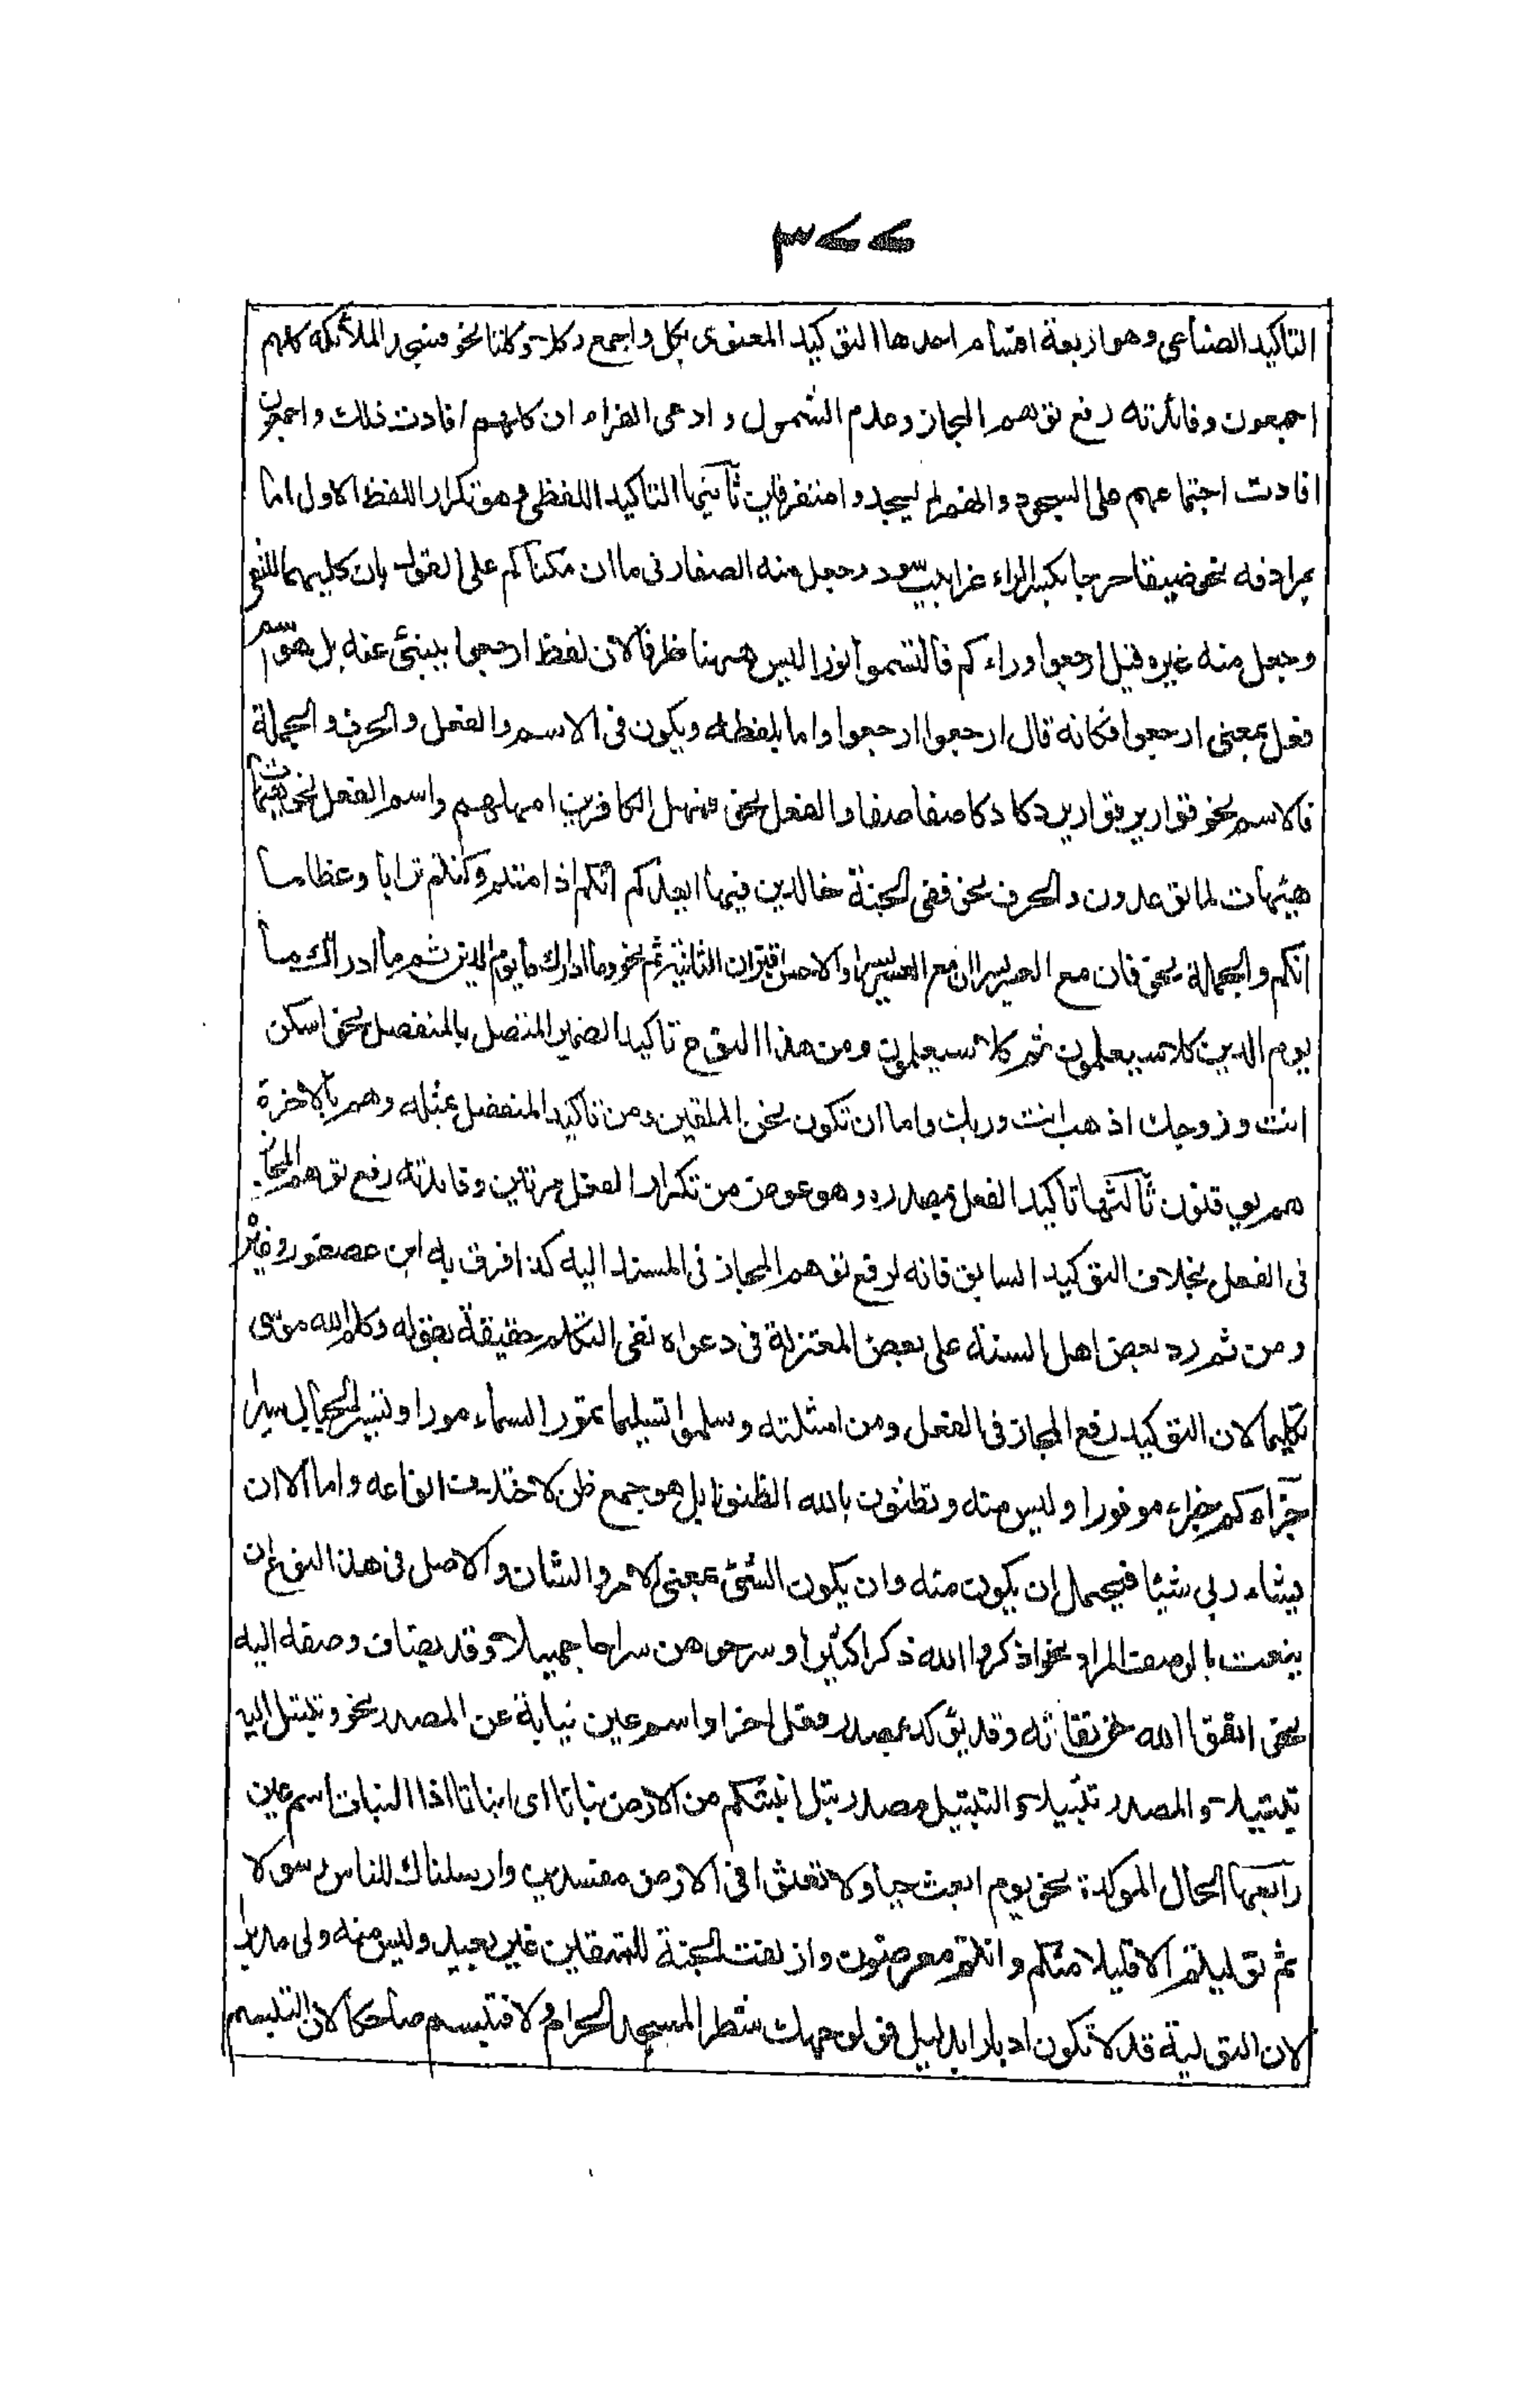 ٣٧٧
التاكيد الصناعى وهو اربعة اقسام احدها التوكيد المعنوى بكل واجمع وكلا وكلتا نحو فسجد الملائكة كلهم
اجمعون وفائدته رفع توهم المجاز وعدم الشمول وادعى الفراء ان كلهم افادت ذلك واجمعون
افادت اجتماعهم على السجود وانهم لم يسجدوا متفرقين ثانيها التاكيد اللفظى وهو تكرار اللفظ الاول اما
بمرادفه نحو ضيقا حرجا بكسر الراء غرابيب سود وجعل منه الصفار فى ما ان مكناكم على القول بان كليهما للنفى
وجعل منه غيره قيل ارجعوا وراءكم فالتمسوا نورا ليس ههنا ظرفا لان لفظ ارجعوا ينبئ عنه بل هو اسم
فعل بمعنى ارجعوا فكانه قال ارجعوا ارجعوا واما بلفظه ويكون فى الاسم والفعل والحرف والجملة
فالاسم نحو قوارير قوارير دكا دكا صفا صفا والفعل نحو فمهل الكافرين امهلهم واسم الفعل نحو هيهات
هيهات لما توعدون والحرف نحو ففى الجنة خالدين فيها ايعدكم انكم اذا متم وكنتم ترابا وعظاما
انكم والجملة نحو فان مع العسر يسرا ان مع العسر يسرا والاحسن اقتران الثانية بثم نحو وما ادراك ما يوم الدين ثم ما ادراك ما
يوم الدين كلا سيعلمون ثم كلا سيعلمون ومن هذا النوع تاكيد الضمير المتصل بالمنفصل نحو اسكن
انت وزوجك اذهب انت وربك واما ان نكون نحن الملقين ومن تاكيد المنفصل بمثله وهم بالاخرة
هم يوقنون ثالثها تاكيد الفعل بمصدره وهو عوض من تكرار الفعل مرتين وفائدته رفع توهم المجاز
فى الفعل بخلاف التوكيد السابق فانه لرفع توهم المجاز فى المسند اليه كذا فرق به ابن عصفور وغيره
ومن ثم رد بعض اهل السنة على بعض المعتزلة فى دعواه نفى التكلم حقيقة بقوله وكلم الله موسى
تكليما لان التوكيد رفع المجاز فى الفعل ومن امثلته وسلموا تسليما تمور السماء مورا وتسير الجبال سيرا
جزاؤكم جزاء موفورا وليس منه وتظنون بالله الظنونا بل هو جمع ظن لاختلاف انواعه واما الا ان
يشاء ربى شيئا فيحتمل ان يكون منه وان يكون الشئ بمعنى الامر والشان والاصل فى هذا النوع ان
ينعت بالوصف المراد نحو اذكروا الله ذكرا كثيرا وسرحوهن سراحا جميلا وقد يضاف وصفه اليه
نحو اتقوا الله حق تقاته وقد يؤكد بمصدر فعل اخر او اسم عين نيابة عن المصدر نحو وتبتل اليه
تبتيلا والمصدر تبتيلا والتبتيل مصدر بتل انبتكم من الارض نباتا اى انباتا اذا النبات اسم عين
رابعها الحال المؤكدة نحو يوم ابعث حيا ولا تعثوا فى الارض مفسدين وارسلناك للناس رسولا
ثم توليتم الا قليلا منكم وانتم معرضون وازلفت الجنة للمتقين غير بعيد وليس منه ولى مدبرا
لان التولية قد لا تكون ادبارا بدليل فول وجهك شطر المسجد الحرام ولا فتبسم ضاحكا لان التبسم